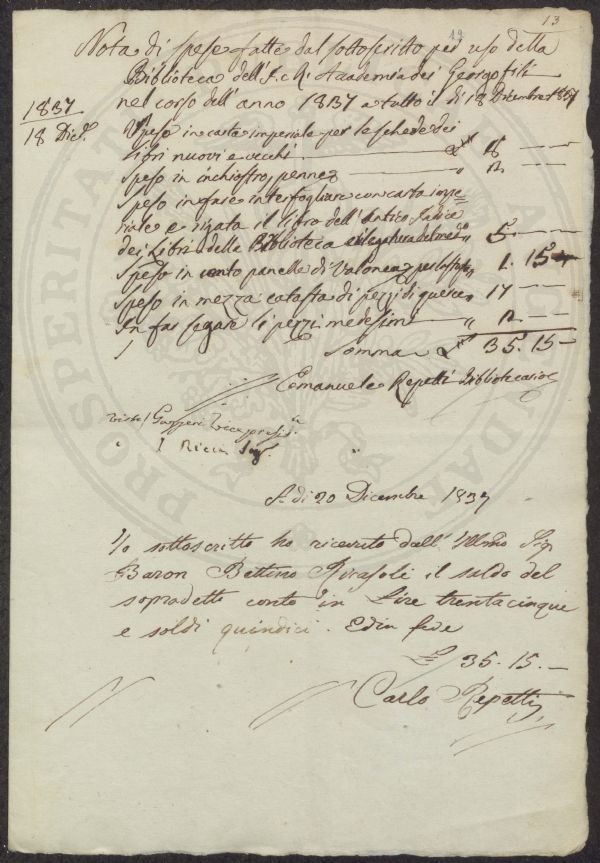 13
12
Nota di spese fatte dal sottoscritto per uso della
Biblioteca dell'I. e R. Accademia dei Georgofili
nel corso dell'anno 1837 a tutto il dì 18 Dicembre 1837
1837
18 Dic.
Speso in carta imperiale per le schede dei
libri nuovi e vecchi
Speso in inchiostro, penne
Speso in fare interfogliare con carta impe=
riale e rigata il libro dell'Antico Indice
dei Libri della Biblioteca e legatura del med.o 5. —
Speso in cento panelle di Valonea 1. 15 —
Speso in mezza catasta di pezzi di querce 17 —
In far segare li pezzi medesimi
Somma £ 35. 15 —
Emanuele Repetti Bibliotecario
visto / Gazzeri Vicepresid.
" L Ricci Seg.
A di 20 Dicembre 1837
Io sottoscritto ho ricevuto dall' Illmo Sig
Baron Bettino Ricasoli il saldo del
sopradetto conto in Lire trentacinque
e soldi quindici. Ed in fede
£ 35. 15. —
Carlo Repetti
PROSPERITATI AUGENDAE